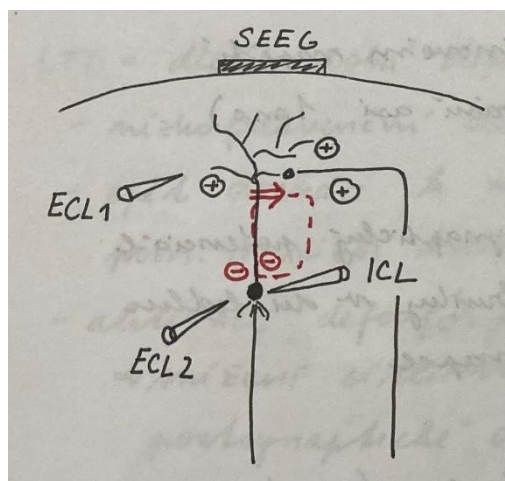 SEEG
+
ECL1
+
+
-
-
ICL
ECL2